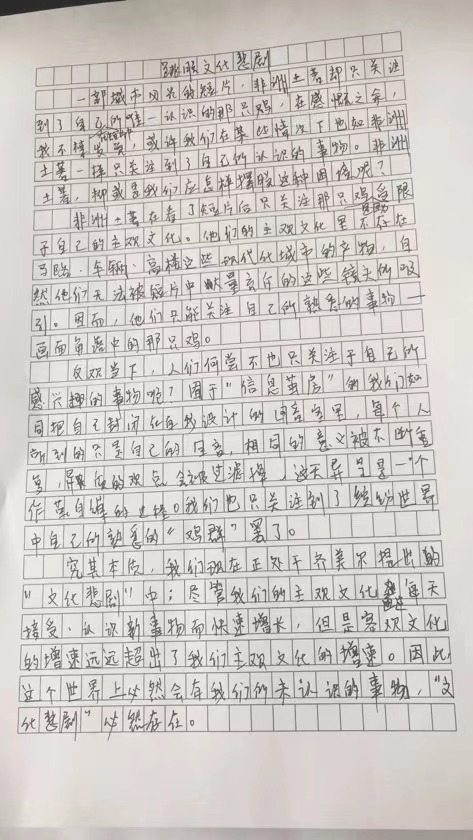 文化悲剧
一部城市风光的短片，非洲土著却只关注
到了自己所唯一认识的那只鸡，在感慨之余，
我不禁发问，或许我们在某些情况下也如非洲
土著一样只关注到了自己所认识的事物。非洲
土著，抑或是我们应怎样摆脱这种困境呢？
非洲土著在看了短片后只关注那只鸡受限
于自己的主观文化。他们的主观文化里不存在
马路、车辆、高楼这些现代化城市的产物，自
然他们无法被短片中的这些镜头所吸
引。因而，他们只能关注自己所熟悉的事物——
画面角落中的那只鸡。
反观当下，人们何尝不也只关注于自己所
感兴趣的事物呢？困于“信息茧房”的我们如
同把自己封闭在自我设计的回音室里，每个人
听到的只是自己的回音，相同的意义被不断重
复，的观点会被过滤掉，这无异于是一个
作茧自缚的过程。我们也只关注到了缤纷世界
中自己所熟悉的“鸡群”罢了。
究其本质，我们现在正处于齐美尔提出的
“文化悲剧”中：尽管我们的主观文化每天
接受、认识新事物而快速增长，但是客观文化
的增速远远超出了我们主观文化的增速。因此，
这个世界上必然会有我们所未认识的事物，“文
化悲剧”必然存在。